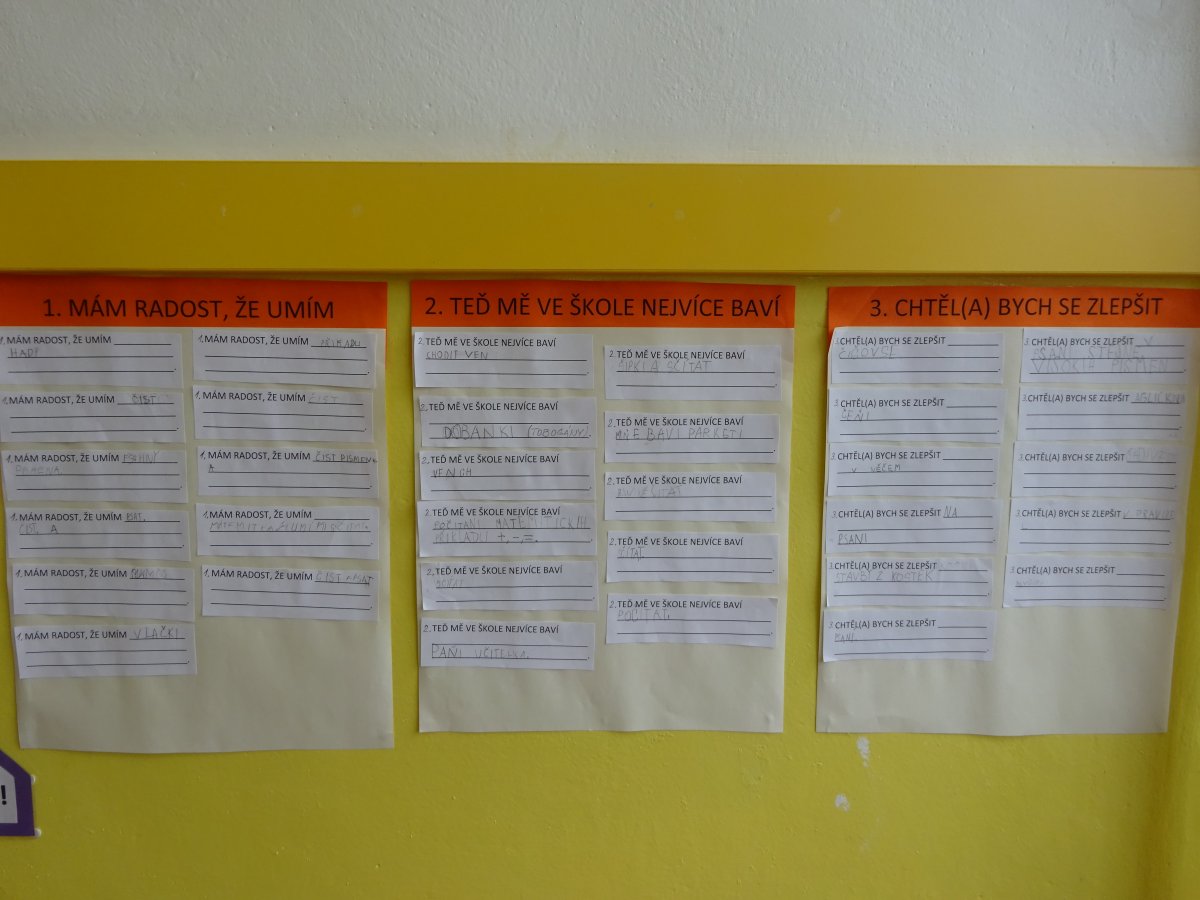 1. MÁM RADOST, ŽE UMÍM
1. MÁM RADOST, ŽE UMÍM
HADY
1. MÁM RADOST, ŽE UMÍM ČÍST
1. MÁM RADOST, ŽE UMÍM
1. MÁM RADOST, ŽE UMÍM PSAT,
ČIST, A
1. MÁM RADOST, ŽE UMÍM
1. MÁM RADOST, ŽE UMÍM VLAČKI
1. MÁM RADOST, ŽE UMÍM
1. MÁM RADOST, ŽE UMÍM ČÍST
1. MÁM RADOST, ŽE UMÍM ČÍST PISMENK
A
1. MÁM RADOST, ŽE UMÍM
1. MÁM RADOST, ŽE UMÍM ČIST APSAT
2. TEĎ MĚ VE ŠKOLE NEJVÍCE BAVÍ
2. TEĎ MĚ VE ŠKOLE NEJVÍCE BAVÍ
CHODIT VEN
2. TEĎ MĚ VE ŠKOLE NEJVÍCE BAVÍ
DOBANKI (TOBOGÁNY).
2. TEĎ MĚ VE ŠKOLE NEJVÍCE BAVÍ
VENCH
2. TEĎ MĚ VE ŠKOLE NEJVÍCE BAVÍ
POČITANI MATEMATICKIH
PŘIKLADU +,-,=.
2. TEĎ MĚ VE ŠKOLE NEJVÍCE BAVÍ
2. TEĎ MĚ VE ŠKOLE NEJVÍCE BAVÍ
PANI UČITELKA.
2. TEĎ MĚ VE ŠKOLE NEJVÍCE BAVÍ
ŠIPKI A SČÍTAT
2. TEĎ MĚ VE ŠKOLE NEJVÍCE BAVÍ
MŇE BAVÍ PARKETI
2. TEĎ MĚ VE ŠKOLE NEJVÍCE BAVÍ
2. TEĎ MĚ VE ŠKOLE NEJVÍCE BAVÍ
2. TEĎ MĚ VE ŠKOLE NEJVÍCE BAVÍ
POČÍTAT.
3. CHTĚL(A) BYCH SE ZLEPŠIT
3. CHTĚL(A) BYCH SE ZLEPŠIT
3. CHTĚL(A) BYCH SE ZLEPŠIT
ČEŇI
3. CHTĚL(A) BYCH SE ZLEPŠIT
V VĚČEM
3. CHTĚL(A) BYCH SE ZLEPŠIT NA
PSANI
3. CHTĚL(A) BYCH SE ZLEPŠIT
STAVBĚ Z KOSTEK
3. CHTĚL(A) BYCH SE ZLEPŠIT
PSANI.
3. CHTĚL(A) BYCH SE ZLEPŠIT V
PSANI STEJNE
VISOKIH PISMEN
3. CHTĚL(A) BYCH SE ZLEPŠIT
3. CHTĚL(A) BYCH SE ZLEPŠIT
3. CHTĚL(A) BYCH SE ZLEPŠIT
3. CHTĚL(A) BYCH SE ZLEPŠIT
!